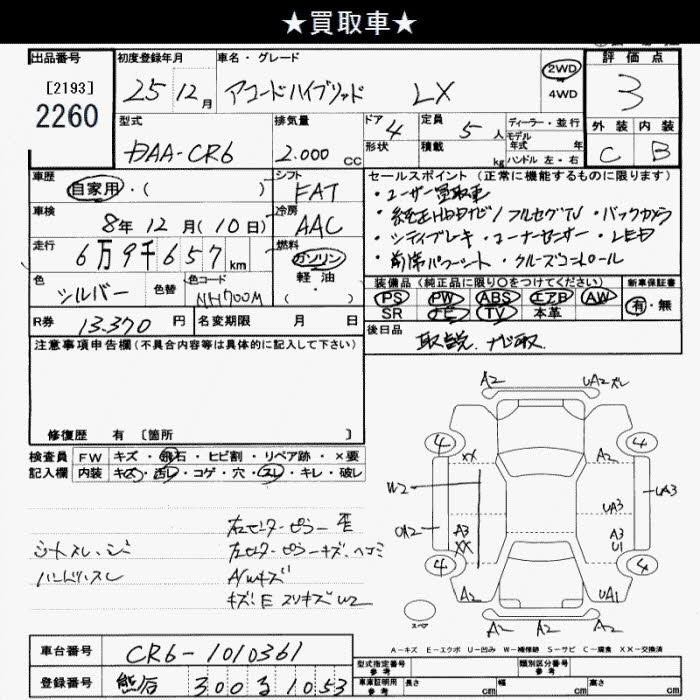 ★買取車★
出品番号 初度登録年月 車名・グレード 評価点
[2193] 25年12月 アコードハイブリッド LX 2WD 4WD 3
2260
型式 排気量 ドア 4 定員 5人 ディーラー・並行 外装 内装
DAA-CR6 2.000 CC 形状 積載 kg モデル年式 年 ハンドル 左・右 C B
車歴 シフト セールスポイント(正常に機能するものに限ります)
自家用・( ) FAT ・ユーザー買取車
車検 冷房 ・純正HDDナビ/フルセグTV ・バックカメラ
8年12月(10日) AAC ・シティブレーキ ・コーナーセンサー ・LED
走行 燃料 ・前席パワーシート ・クルーズコントロール
6万9千657km ガソリン
色 色替 色コード 軽油・ 装備品(純正品に限り○をつけてください) 新車保証書
シルバー NH700M ( ) PS PW ABS エアB AW 有・無
SR ナビ TV 本革
R券 13.370円 名変期限 月 日 後日品
注意事項申告欄(不具合内容等は具体的に記入して下さい) 取説、ナビ取
修復歴 有 〔箇所 〕
検査員 FW キズ・飛石・ヒビ割・リペア跡・×要
記入欄 内装 キズ・汚レ・コゲ・穴・スレ・キレ・破レ
A2 UA2ズレ
4 4
XX A2
W2 UA3 UA3
UA2 A3 A3
XX U1
4 4
A2 UA1
A2 A2
スペア
右センターピラーE
シートスレ、シミ 左センターピラーキズ、ヘコミ
ハンドルスレ AWキズ
キズ、E スリキズ W2
A-キズ E-エクボ U-凹み W-補修跡 S-サビ C-腐食 XX-交換済
車台番号 CR6-1010361 型式指定番号 参考 類別区分番号 参考
登録番号 熊谷 300 る 1053 車庫証明用 参考 長さ cm 幅 cm 高さ cm